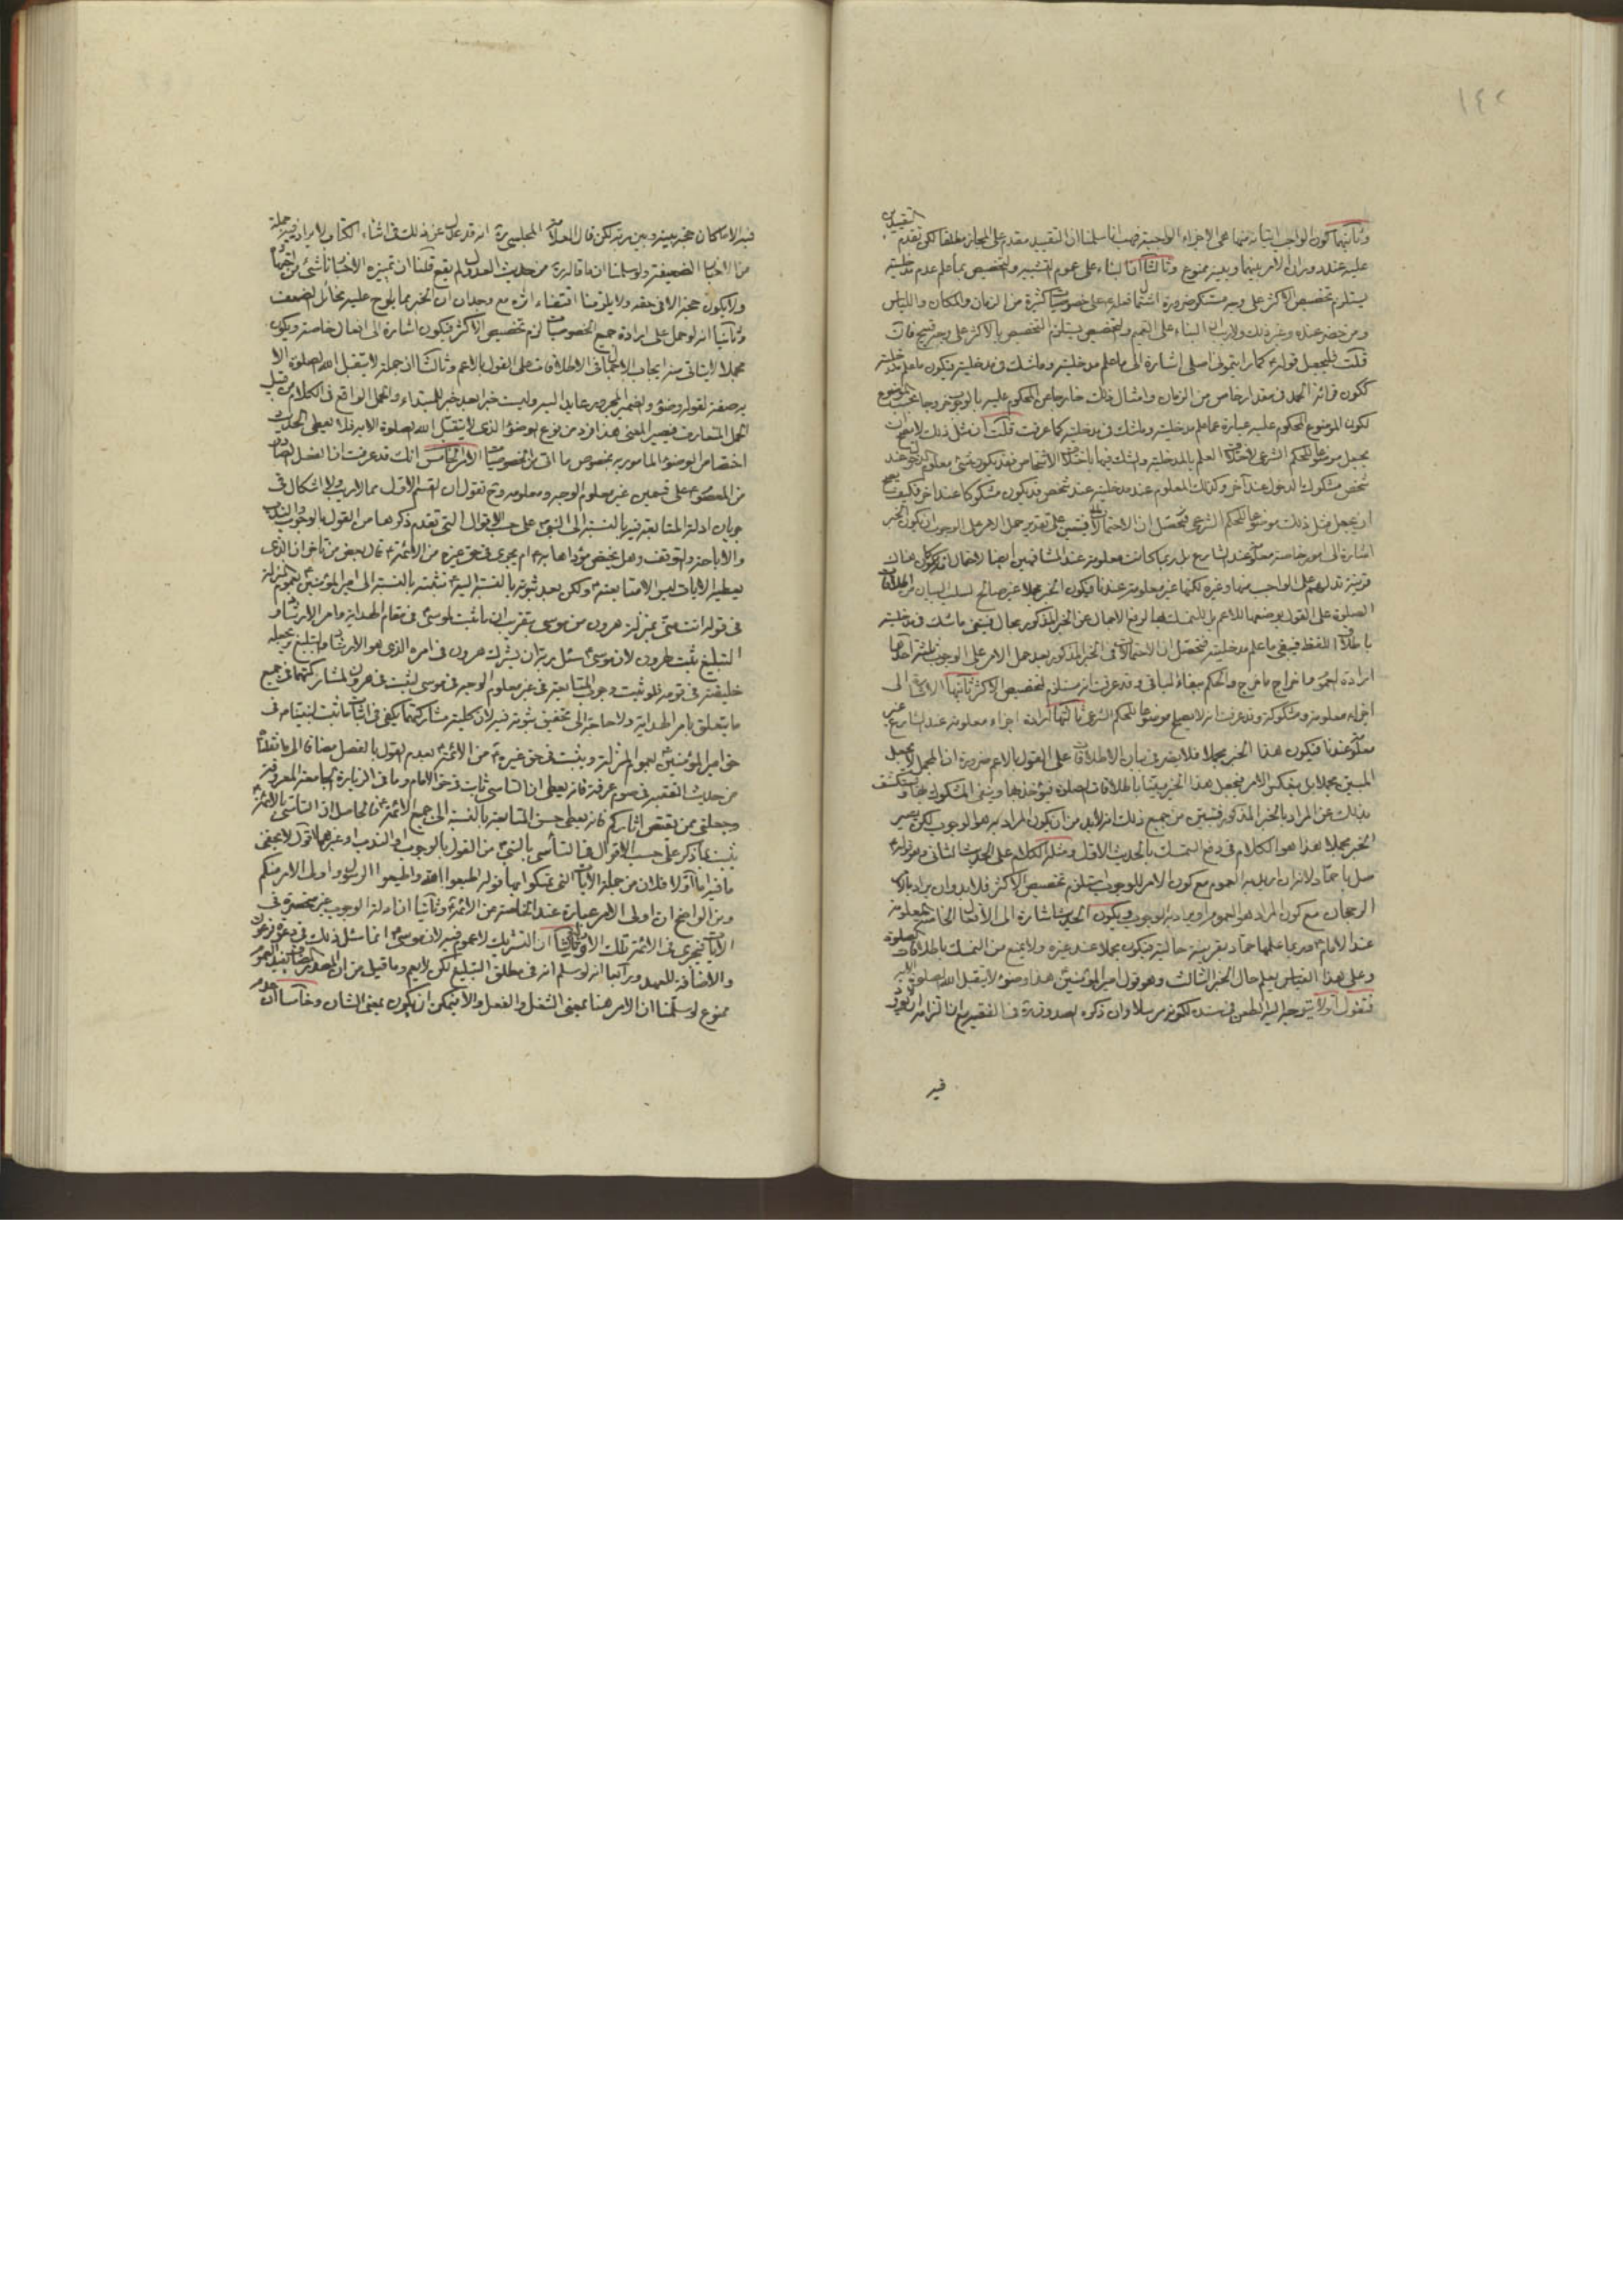 ١٤٢
التقييد
وثانيهما كون الواجب اتيانه منها هى الاجزاء الواجبة فهب انا سلمنا ان التقييد مقدم على المجاز مطلقا لكن تقدم
عليه عند دوران الامر بينهما وبينه ممنوع وثالثا ان البناء على عموم التشبيه والتخصيص بما علم عدم مدخليته
يستلزم تخصيص الاكثر على وجه مستنكر ضرورة اشتمال فعله على خصوصيات كثيرة من الزمان والمكان واللباس
ومن حضر عنده وغير ذلك ولا ريب ان البناء على التعميم والتخصيص يستلزم التخصيص بالاكثر على وجه قبيح فان
قلت فليجعل قوله كما رايتمونى اصلى اشارة الى ما علم مدخليته وما شك فى مدخليته ويكون ما علم عدم مدخليته
ككون قرائة الحمد فى مقدار خاص من الزمان وامثال ذلك خارجا عن المحكوم عليه بالوجوب خروجا عن الموضوع
لكون الموضوع المحكوم عليه عبارة عما علم مدخليته وما شك فى مدخليته كما عرفت قلت ان مثل ذلك لا يصح ان
يجعل موضوعا للحكم الشرعى لاختلاف العلم بالمدخلية والشك فيها باختلاف الاشخاص فقد يكون شىء معلوم الدخول عند
شخص مشكوك الدخول عند آخر وكذلك المعلوم عدم مدخليته عند شخص قد يكون مشكوكا عند اخر فكيف يصح
ان يجعل مثل ذلك موضوعا للحكم الشرعى فتحصل ان الاحتمالات فيه على تقدير حمل الامر على الوجوب ان يكون الخبر
اشارة الى امور خاصة معلومة عند الشارع بل ربما كانت معلومة عند المشافهين ايضا لاحتمال ان يكون هناك
قرينة تدلهم على الواجب منها وغيره لكنها غير معلومة عندنا فيكون الخبر مجملا غير صالح لسلب البيان من اطلاقات
الصلوة على القول بوضعها للاعم بل التمسك بها لرفع الاجمال عن الخبر المذكور بحال فينفى ما شك فى مدخليته
باطلاق اللفظ فيبقى ما علم مدخليته فتحصل ان الاحتمالات فى الخبر المذكور بعد حمل الامر على الوجوب ثلثة احدها
ارادة العموم واخراج ما خرج والحكم ببقاء الباقى وقد عرفت انه مستلزم لتخصيص الاكثر ثانيها الاشارة الى
اجزاء معلومة ومشكوكة وقد عرفت انه لا يصلح موضوعا للحكم الشرعى ثالثها ارادة اجزاء معلومة عند الشارع غير
معلومة عندنا فيكون هذا الخبر مجملا فلا يضر فى بيان الاطلاقات على القول بالاعم ضرورة ان المجمل لا يجعل
المبين مجملا بل ينعكس الامر فيجعل هذا الخبر مبينا باطلاقات الصلوة فيؤخذ بها وينفى المشكوك بها ويستكشف
بذلك عن المراد بالخبر المذكور فتبين من جميع ذلك انه لابد من ان يكون المراد به هو الوجوب لكن يصير
الخبر مجملا هذا هو الكلام فى دفع التمسك بالحديث الاول ومثله الكلام على الحديث الثانى وهو قوله
صل يا حماد لانه ان اريد به العموم مع كون الامر للوجوب استلزم تخصيص الاكثر فلابد وان يراد بالامر
الرجحان مع كون المراد هو العموم او يراد به الوجوب ويكون الحديث اشارة الى الافعال الخاصة المعلومة
عند الامام وربما علمها حماد بقرينة حالية فيكون مجملا عند غيره ولا يمنع من التمسك باطلاقات الصلوة
وعلى هذا القياس يعلم حال الخبر الثالث وهو قول امير المؤمنين هذا وضوء لا يقبل الله الصلوة الا به
فنقول اولا يتوجه اليه الطعن فى سنده لكونه مرسلا وان ذكره الصدوق ره فى الفقيه مع التزامه ان لا يورد
فيه
فيه الا ما كان حجة بينه وبين ربه لكن قال العلامة المجلسى ره انه قد عدل عن ذلك فى اثناء الكتاب لايراد فيه جملة
من الاخبار الضعيفة ولو سلمنا ان ما قاله ره من حديث العدول لم يقع قلنا ان تميزه الاخبار ناشئ من اجتهاده
ولا يكون حجة الا فى حقه ولا يلزمنا اقتفاء اثره مع وجدان ان الخبر مما يلوح عليه مخائل الضعف
وثانيا انه لو حمل على ارادة جميع الخصوصيات لزم تخصيص الاكثر فيكون اشارة الى افعال خاصة ويكون
مجملا لا يتاتى منه ايجاب الاجمال فى الاطلاقات على القول بالاعم وثالثا ان جملة لا يتقبل الله الصلوة الا
به صفة لقوله وضوء والضمير المجرور عايد اليه وليست خبرا بعد خبر للمبتداء والحمل الواقع فى الكلام من قبيل
الحمل المتعارف فيصير المعنى هذا فرد من نوع الوضوء الذى لا يتقبل الله الصلوة الا به فلا يعطى الحديث
اختصاص الوضوء المامور به بخصوص ما اتى به من الخصوصيات الامر الخامس انك قد عرفت ان الفعل الصادر
من المعصوم على قسمين غير معلوم الوجه ومعلومه وح نقول ان القسم الاول مما لا ريب ولا اشكال فى
جريان ادلة المتابعة فيه بالنسبة الى النبى على حسب الاقوال التى تقدم ذكرها من القول بالوجوب والندب
والاباحة والتوقف وهل يختص مؤداها به ام يجرى فى حق غيره من الائمة قال بعض من تاخر ان الذى
يعطيه الايات ليس الا متابعته ولكن بعد ثبوته بالنسبة اليه نثبته بالنسبة الى امير المؤمنين بعموم المنزلة
فى قوله انت منى بمنزلة هرون من موسى بتقريب ان ما ثبت لموسى فى مقام الهداية وامر الارشاد و
التبليغ يثبت لهرون لان موسى سئل ربه ان يشرك هرون فى امره الذى هو الارشاد والتبليغ ويجعله
خليفته فى قومه فلو ثبت وجوب المتابعة فى غير معلوم الوجه فى موسى لثبت فى هرون لمشاركتهما فى جميع
ما يتعلق بامر الهداية ولا حاجة الى تحقيق ثبوته فيه لان كلية مشاركتهما يكفى فى اثبات ما ثبت لنبينا ص فى
حق امير المؤمنين لعموم المنزلة ويثبت فى حق غيره من الائمة بعدم القول بالفصل مضافا الى ما تقدم
من حديث الفقيه فى صوم عرفة فانه يعطى ان التاسى ثابت فى حق الامام وما فى الزيارة الجامعة المعروفة
وجعلنى ممن يقتص اثاركم فانه يعطى حسن المتابعة بالنسبة الى جميع الائمة فالحاصل ان التاسى بالائمة
يثبت بما ذكر على حسب الاقوال فى التأسى بالنبى من القول بالوجوب او الندب او غيرهما اقول لا يخفى
ما فيه اما اولا فلان من جملة الايات التى تمسكوا بها قوله اطيعوا الله واطيعوا الرسول واولى الامر منكم
ومن الواضح ان اولى الامر عبارة عند الخاصة عن الائمة وثانيا ان ادلة الوجوب غير منحصرة فى
الايات فيجرى فى الائمة تلك الادلة وثالثا ان التشريك لا عموم فيه لان موسى انما سئل ذلك فى دعوة فرعون
والاضافة للعهد ورابعا انه لو سلم انه فى مطلق التبليغ لكن لا يعم وما قيل من ان المصدر المضاف يفيد العموم
ممنوع لو سلمنا ان الامر هنا بمعنى الشغل والفعل والا فيمكن ان يكون بمعنى الشان وخامسا ان عدم